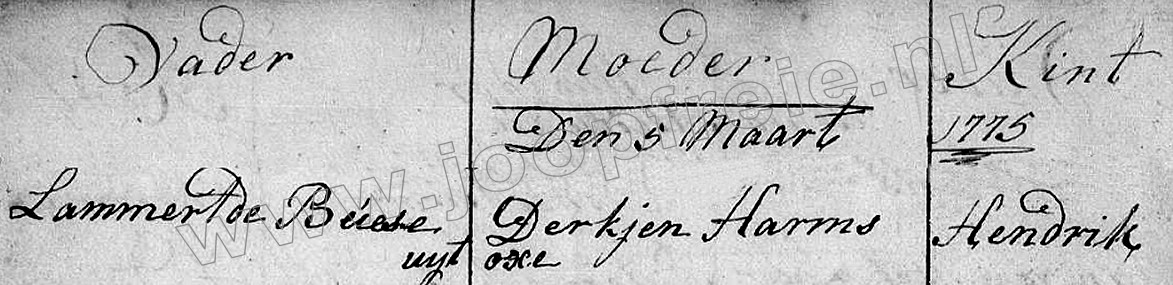 Vader Moeder Kint
Den 5 Maart 1775
Lammert de Buese Derkjen Harms Hendrik
uyt oxe
www.joopfreie.nl